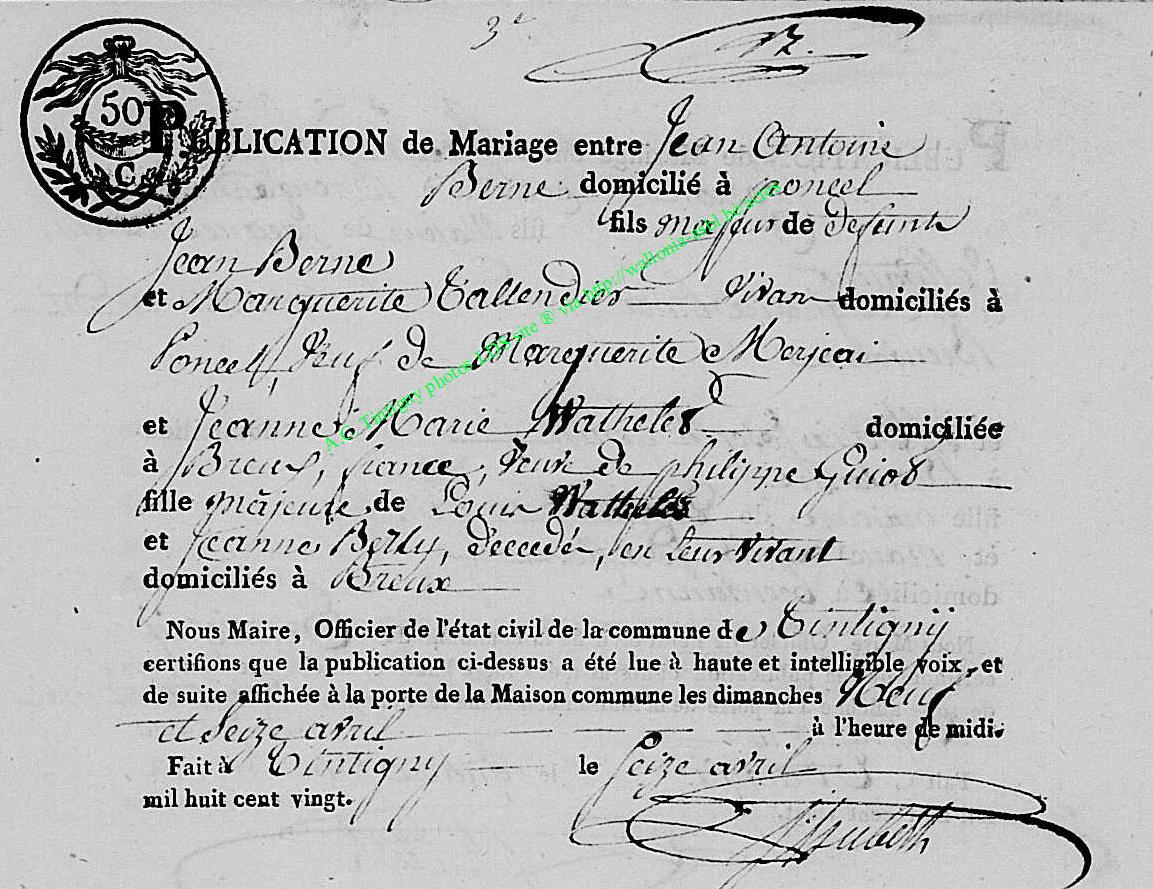 3e
50
C.
PUBLICATION de Mariage entre Jean Antoine
Berne domicilié à poncel
fils majeur de defunts
Jean Berne
et Marguerite Tallendier vivan domiciliés à
Poncel, veuf de Marguerite Merjeai
et Jeanne Marie Wathelet domiciliée
à Breux, france, veuve de philippe Guiot
fille majeure de Louis Wathelet
et Jeanne, décedés, en leur vivant
domiciliés à Breux
Nous Maire, Officier de l'état civil de la commune de Tintigny
certifions que la publication ci-dessus a été lue à haute et intelligible voix, et
de suite affichée à la porte de la Maison commune les dimanches Neuf
et Seize avril à l'heure de midi.
Fait à Tintigny le Seize avril
mil huit cent vingt.
A.C. Tintigny photos LDS site ® via http://wallonia-asbl.be.acres